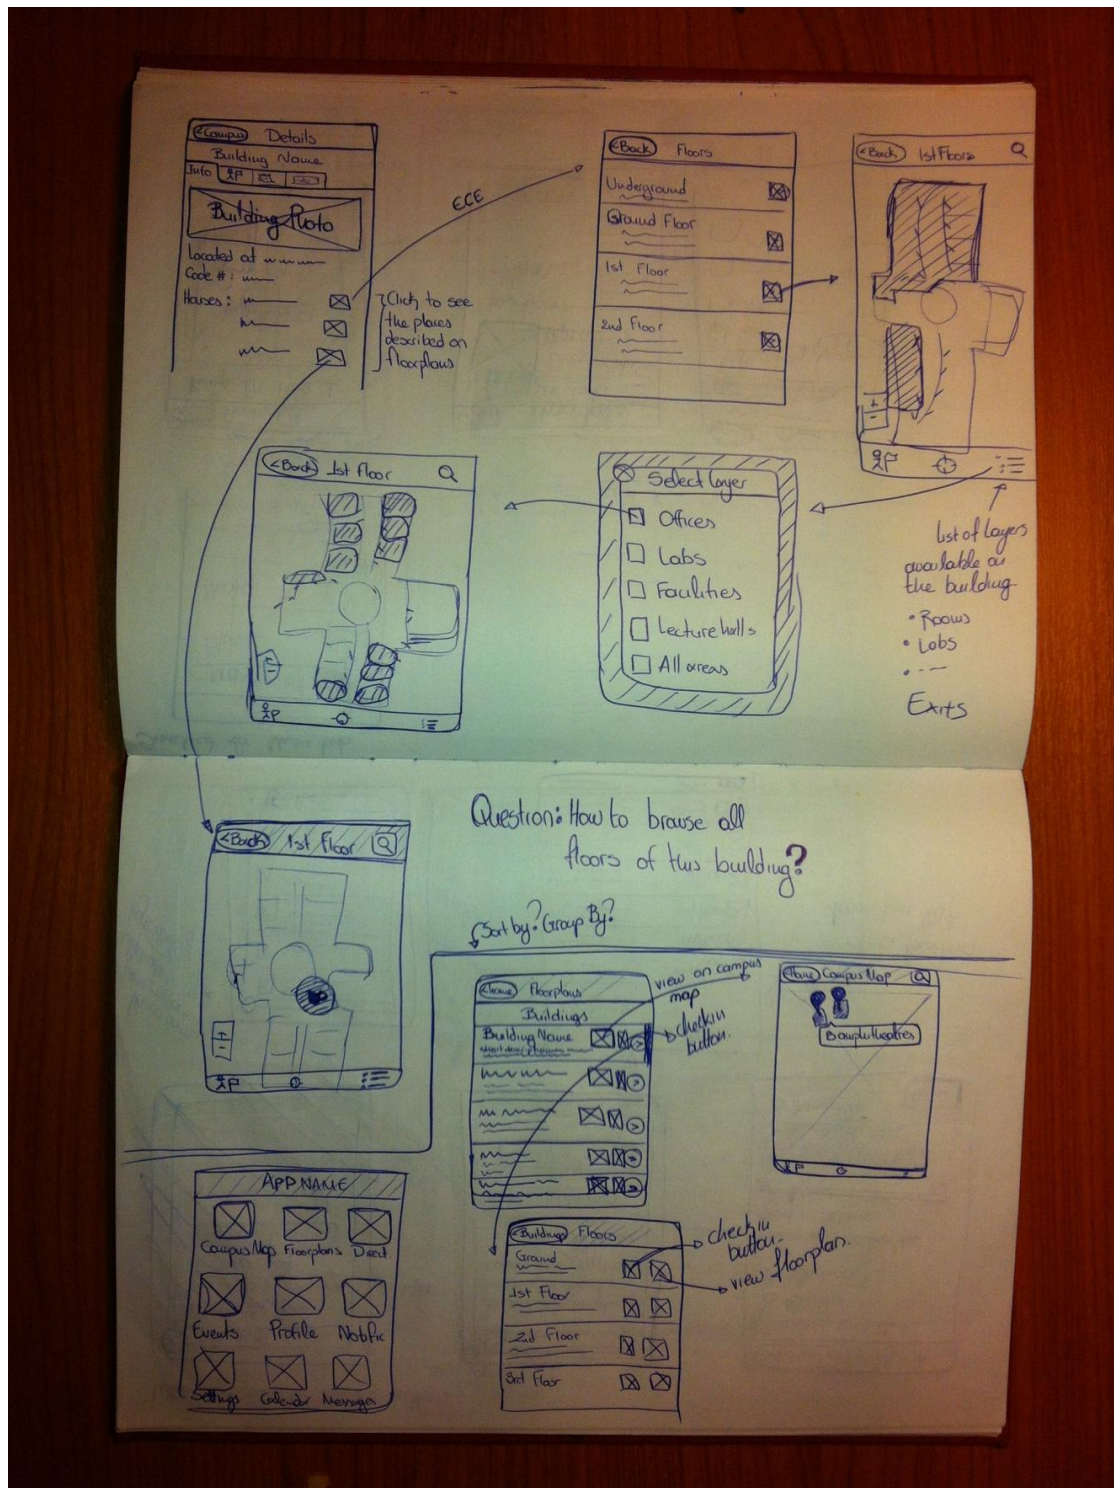 <Campus Details
Building Name
Info
Building Photo
Located at
Code #:
Houses:
Click to see
the places
described on
floorplans
ECE
<Back Floors
Underground
Ground Floor
1st Floor
2nd Floor
<Back 1st Floor
+
-
<Back 1st Floor
Select layer
Offices
Labs
Facilities
Lecture halls
All areas
List of layers
available on
the building.
• Rooms
• Labs
•
Exits
<Back 1st Floor
+
-
Question: How to browse all
floors of this building?
Sort by? Group By?
<Home Floorplans
Buildings
Building Name
short description
view on campus
map
check in
button.
<Home Campus Map
Bamphitheatres
APP NAME
Campus Map Floorplans Direct.
Events Profile Notific
Settings Calendar Messages
<Buildings Floors
Ground
1st Floor
2nd Floor
3rd Floor
check in
button.
view floorplan.